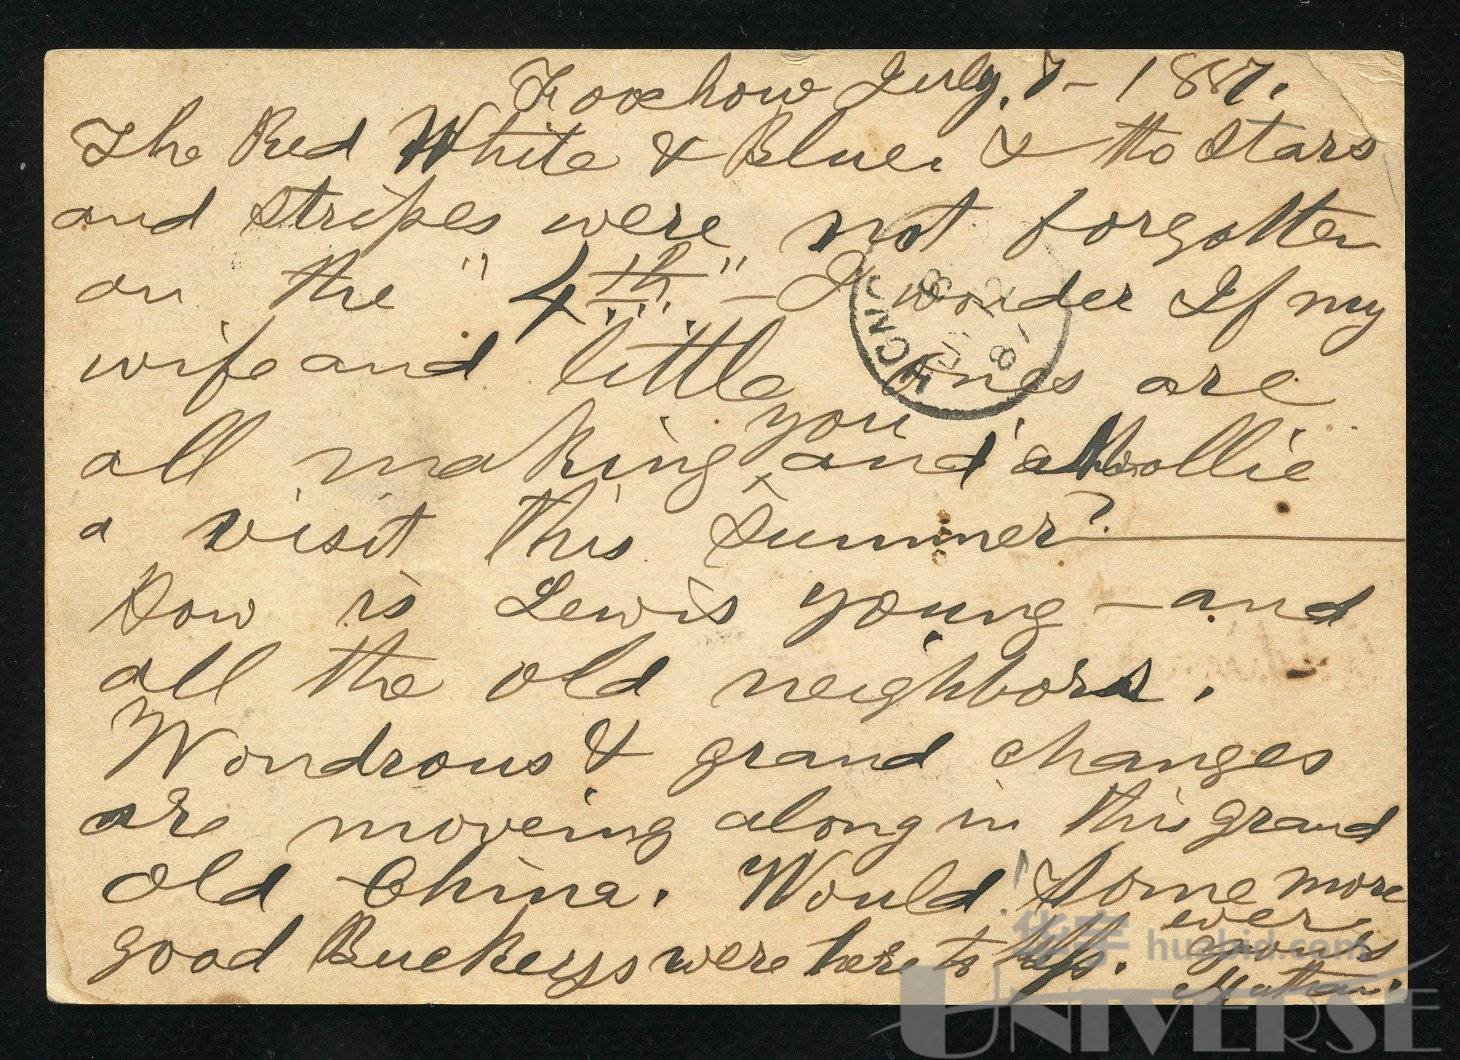 Foochow July, 7- 1887.
The Red White & Blue. & the Stars
and Stripes were not forgotten
on the "4th" - I wonder If my
wife and little ones are
you
all making and Mollie
a visit this Summer?
How is Lewis young - and
all the old neighbors.
Wondrous & grand changes
are moveing along in this grand
Old China. Would Some more
good Buckeyes were here to help. ever
yours
Nathan.
HONG
华宇 huabid.com
UNIVERSE